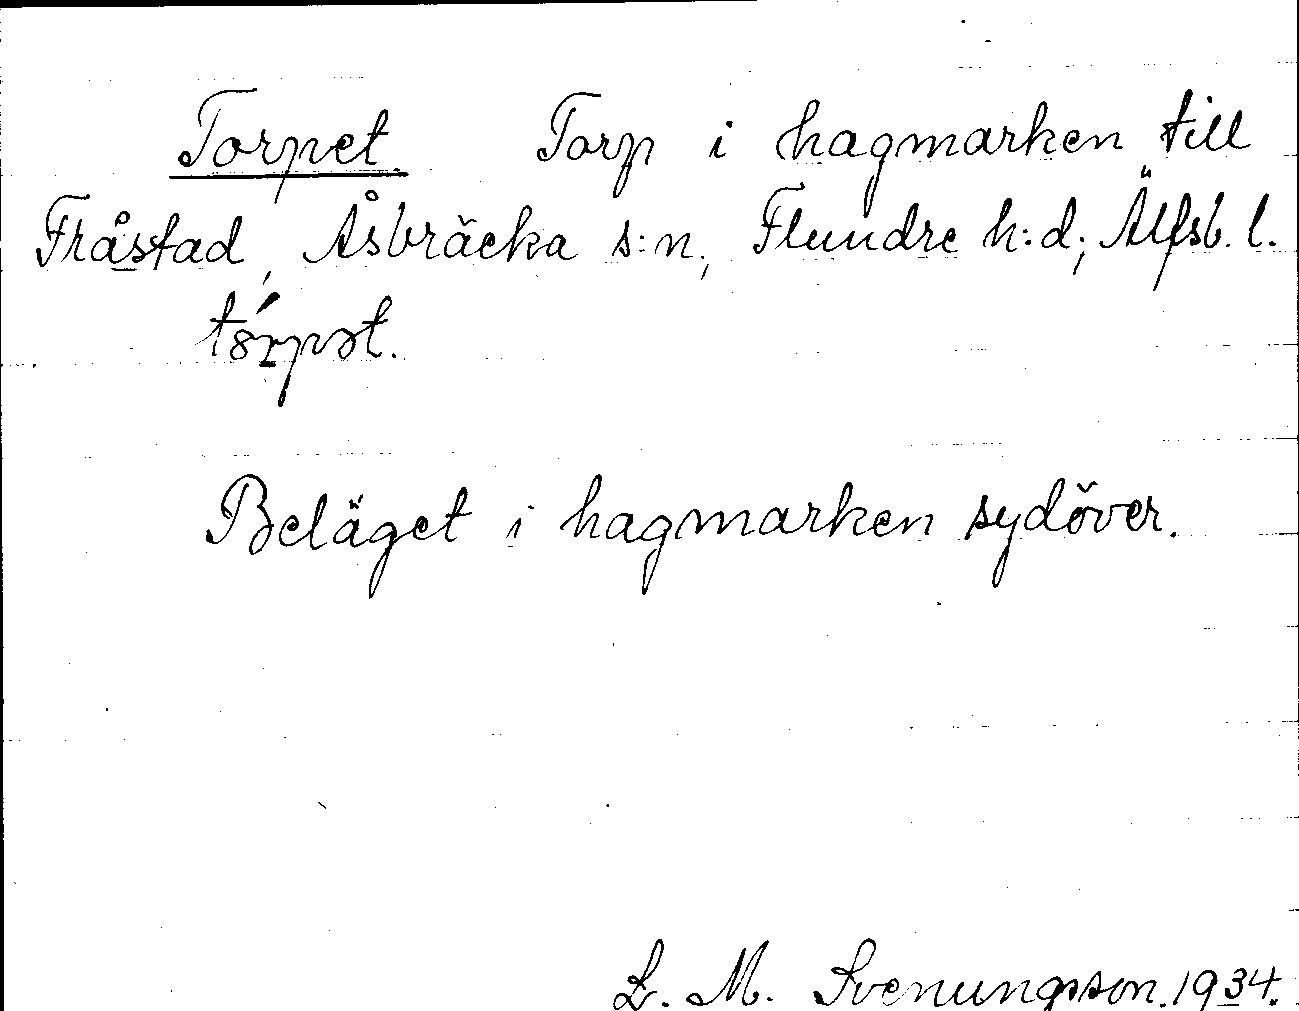 Torpet. Torp i hagmarken till
Fråstad, Åsbräcka s:n, Flundre h:d, Älfsb. l.
Beläget i hagmarken sydöver.
L. M. Svenungsson. 1934.